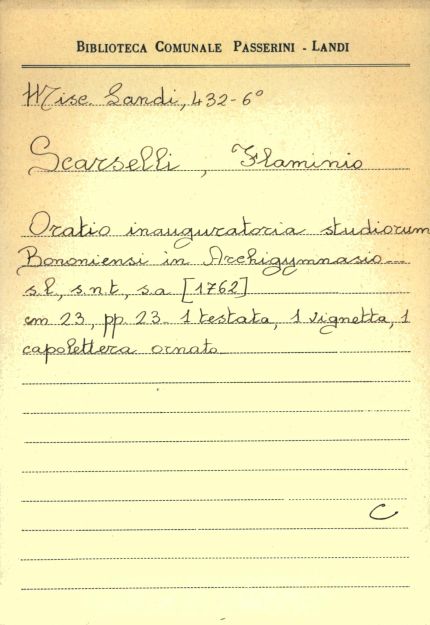 BIBLIOTECA COMUNALE PASSERINI - LANDI
Misc. Landi, 432-6°
Scarselli, Flaminio
Oratio inauguratoria studiorum
Bononiensi in Archigymnasio...
s.l., s.n.t., s.a. [1762]
cm 23, pp 23. 1 testata, 1 vignetta, 1
capolettera ornato
C